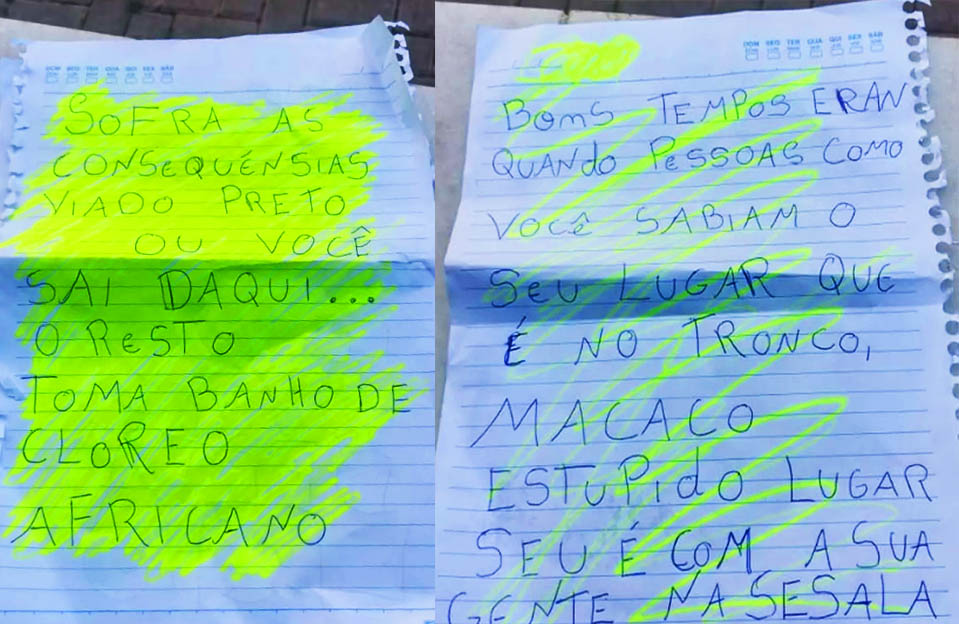 DOM SEG TER QUA QUI SEX SÁB
SOFRA AS
CONSEQUÊNSIAS
VIADO PRETO
OU VOCÊ
SAI DAQUI...
O RESTO
TOMA BANHO DE
CLOREO
AFRICANO
DOM SEG TER QUA QUI SEX SÁB
BOMS TEMPOS ERAN
QUANDO PESSOAS COMO
VOCÊ SABIAM O
SEU LUGAR QUE
É NO TRONCO,
MACACO
ESTUPIDO LUGAR
SEU É COM A SUA
GENTE NA SESALA